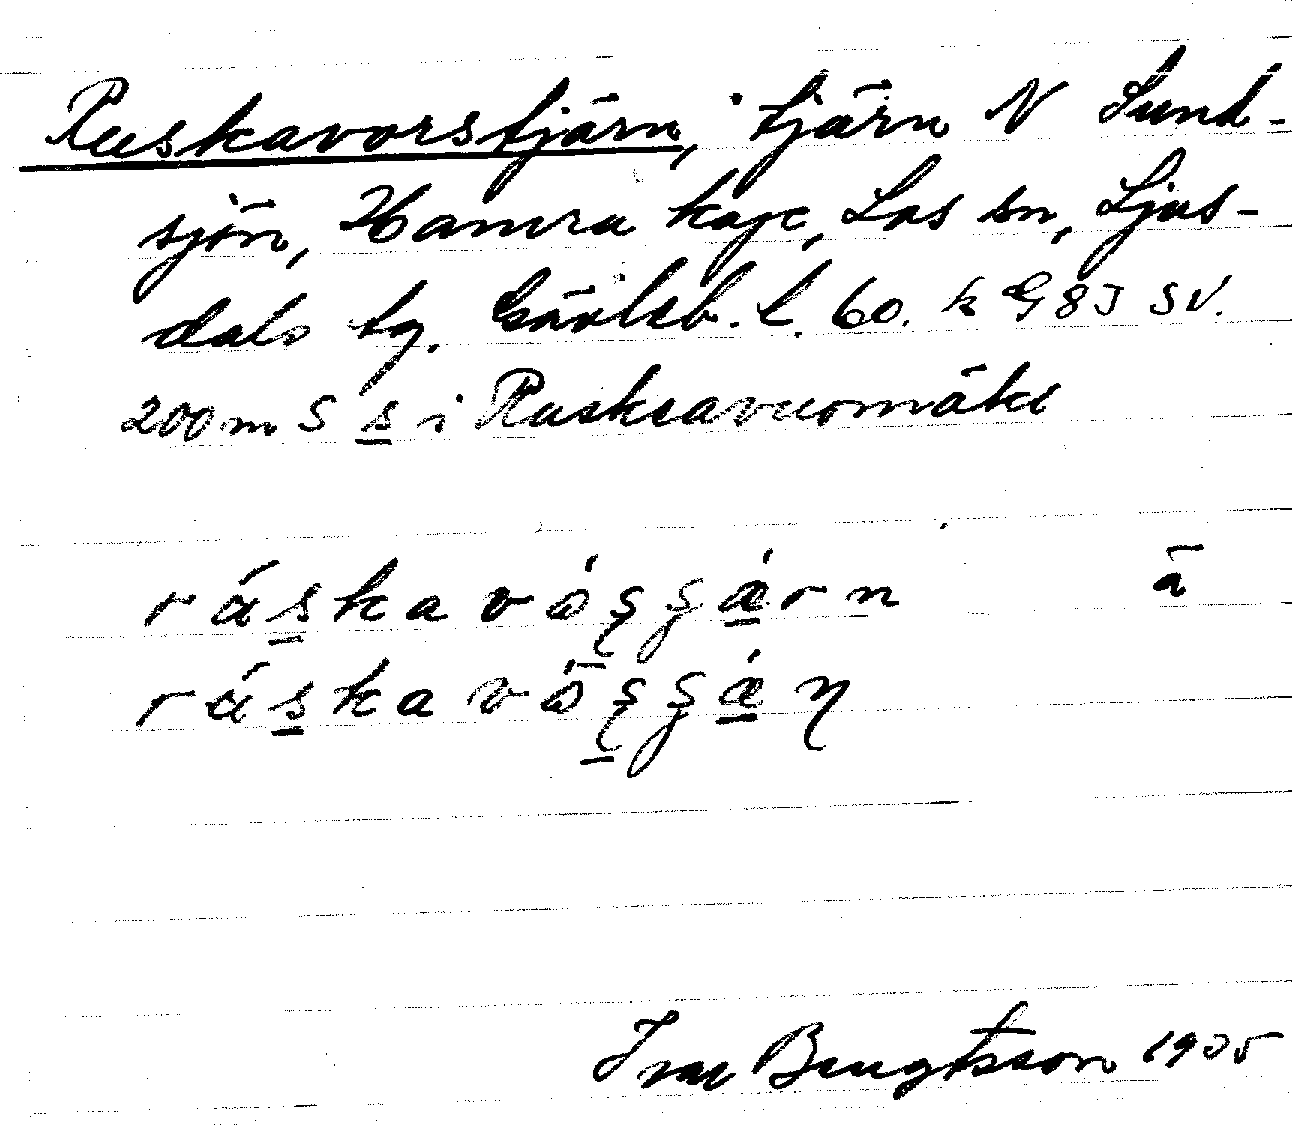 Ruskavorstjärn, tjärn N Sund-
sjön, Hamra kapc, Los sn, Ljus-
dals tg. Gävleb. l. 60. k G 83 SV.
200 m S s i Ruskeavuomäki
ráskavóşşǽrn ā
ráskavóşşǽn
Ivar Bengtsson 1935